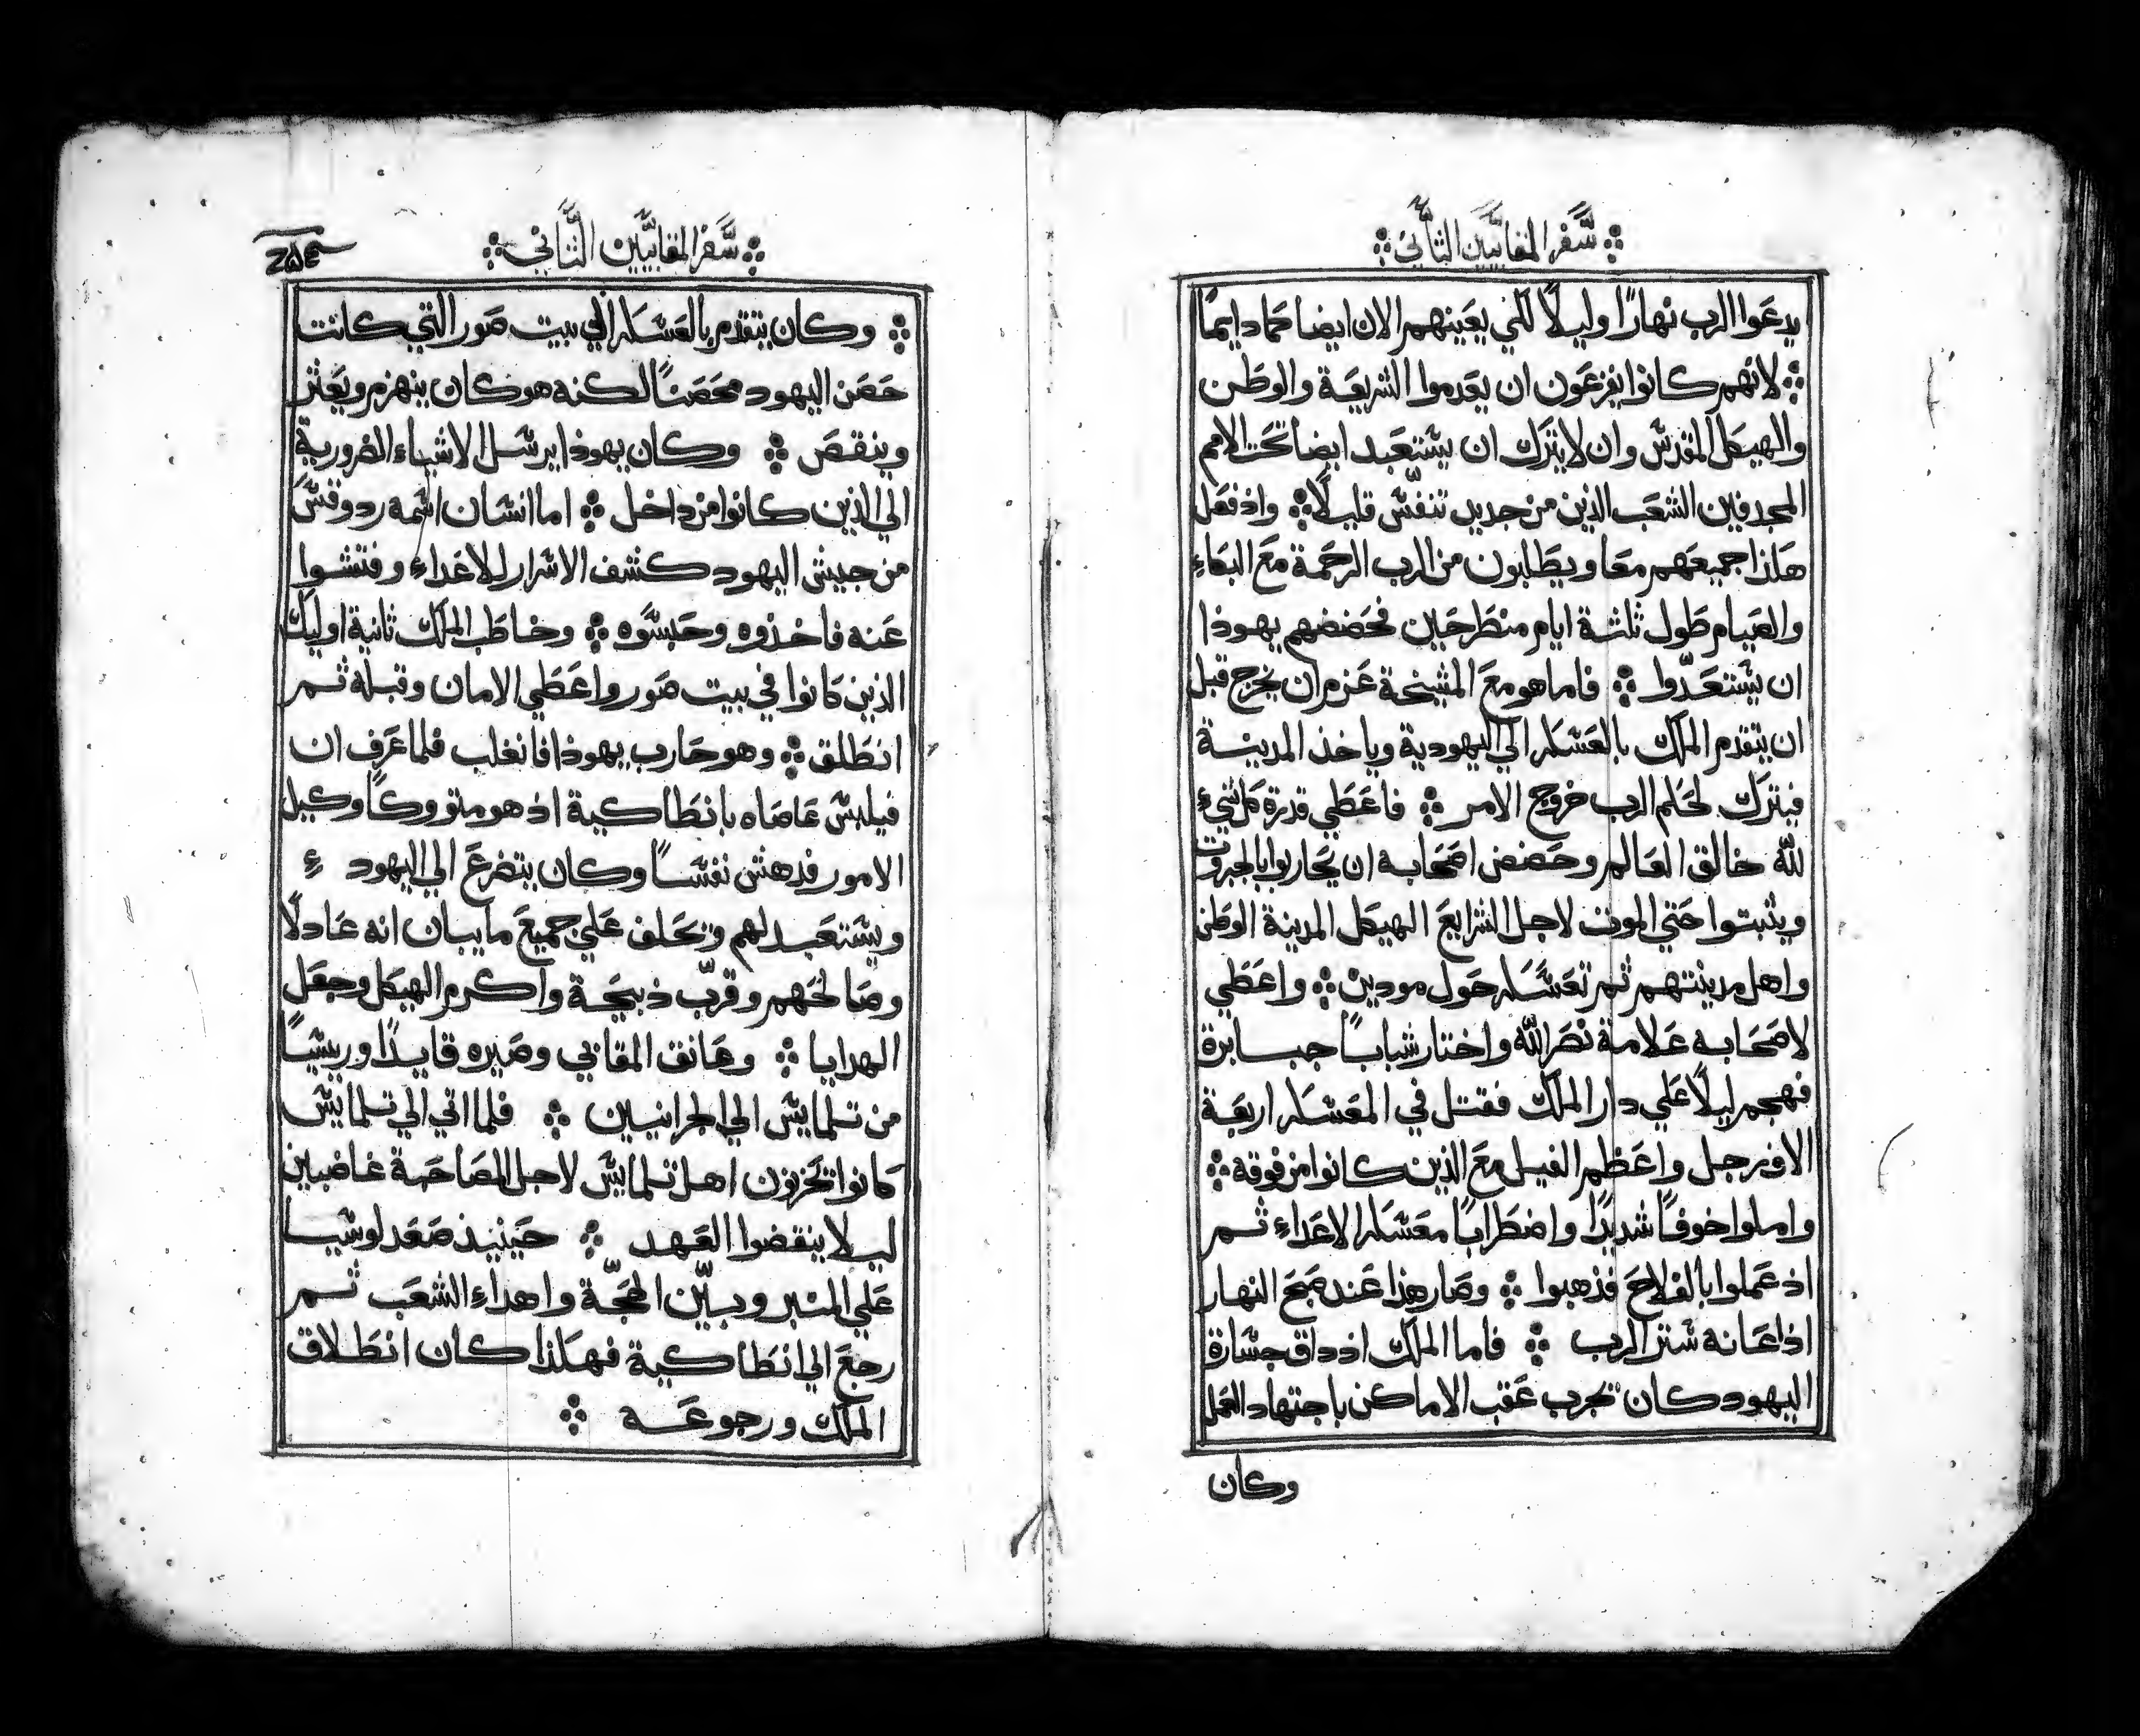 سفر المقابيين الثاني
يدعوا الرب نهارًا وليلًا لكي يعينهم الان ايضا كما دايمًا
لانهم كانوا يفزعون ان يعدموا الشريعة والوطن
والهيكل المقدس وان لا يترك ان يستعبد ايضا تحت الامم
المجدفين الشعب الذين من جديد تنفس قليلًا واذ فعل
هكذا جميعهم معا ويطلبون من الرب الرحمة مع البكاء
والصيام طول ثلثة ايام منطرحين فحضضهم يهوذا
ان يستعدّوا فاما هو مع المشيخة عزم ان يخرج قبل
ان يتقدم الملك بالعسكر الي اليهودية وياخذ المدينة
فيترك لحكم الرب خروج الامر فاعطي قدرة كل شيء
لله خالق العالم وحضض اصحابه ان يحاربوا بالجبروت
ويثبتوا حتي الموت لاجل الشرايع الهيكل المدينة الوطن
واهل مدينتهم ثم تعسكر حول مودين واعطي
لاصحابه علامة نصر الله واختار شبابًا جبابرة
فهجم ليلًا علي دار الملك فقتل في المعسكر اربعة
الاف رجل واعظم الفيل مع الذين كانوا من فوقه
واملوا خوفًا شديدًا واضطرابًا معسكر الاعداء ثم
اذ عملوا بالفلاح فذهبوا وصار هذا عند صبح النهار
اذ اعانه ستر الرب فاما الملك اذ داق جسارة
اليهود كان يجرب عقب الاماكن باجتهاد العمل
وكان
سفر المقابيين الثاني
٢٥٤
وكان يتقدم بالعسكر الي بيت صور التي كانت
حصن اليهود محصنًا لكنه هو كان ينهزم ويعثر
وينقص وكان يهوذا يرسل الاشياء الضرورية
الي الذين كانوا من داخل اما انسان اسمه رودوقس
من جيش اليهود كشف الاسرار للاعداء وفتشوا
عنه فاخذوه وحبسوه وخاطب الملك ثانية اوليك
الذين كانوا في بيت صور واعطي الامان وقبله ثم
انطلق وهو حارب يهوذا فانغلب فلما عرف ان
فيلبس عاصاه بانطاكية اذ هو متووكًا وكيل
الامور فدهش نفسًا وكان يتضرع الي اليهود
ويستعبد لهم وتحلف علي جميع ما يبان انه عادلًا
وصالحهم وقرّب ذبيحة واكرم الهيكل وجعل
الهدايا وعانق المقابي وصيره قايدًا وريسًا
من تلمايس الي الجرانيين فلما اتي الي تلمايس
كانوا تحزنون اهل تلمايس لاجل المصاحبة غاضبين
ليلا ينقضوا العهد حينيذ صعد لوسيا
علي المنبر وبيّن الحجّة واهداء الشعب ثم
رجع الي انطاكية فهكذا كان انطلاق
الملك ورجوعه